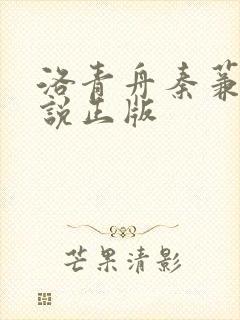 洛青舟秦蒹
説出版
芒果清影